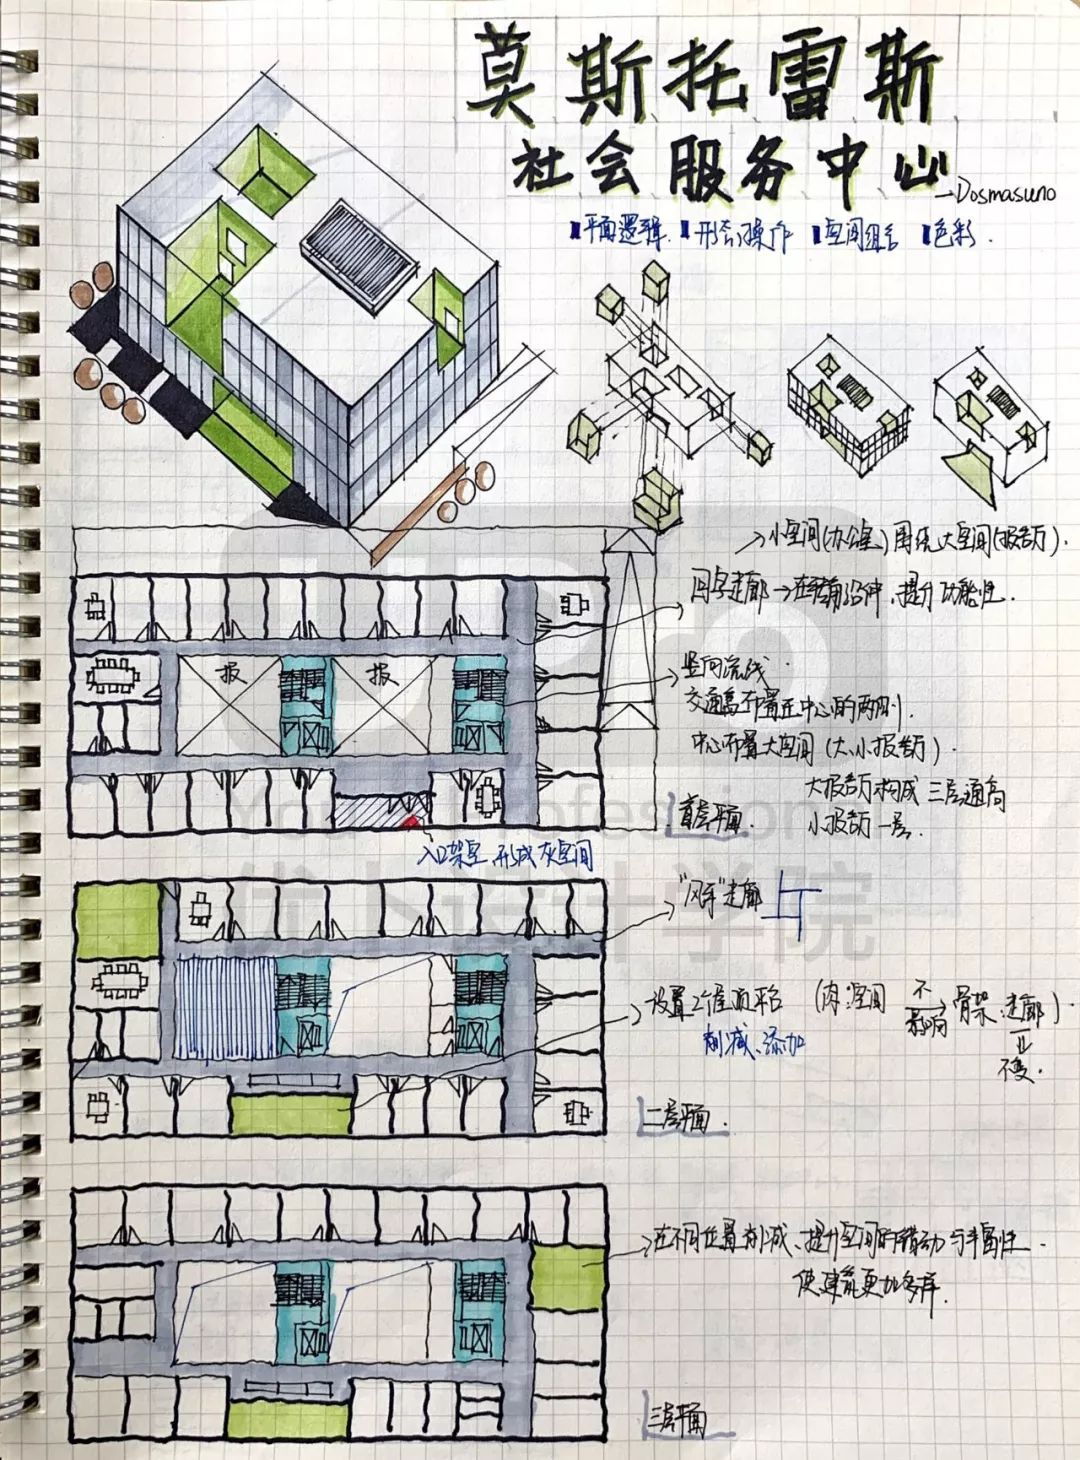 莫斯托雷斯
社会服务中心
→Dosmasuno
平面逻辑 形态操作 空间组合 色彩.
→小空间(办公室)围绕大空间(报告厅).
回字走廊→在转角沿伸、提升功能性.
竖向流线.
交通高布置在中心的两则.
中心布置大空间(大小报告厅).
大报告厅构成三层通高
小报告厅一层.
报
报
首层平面.
入口架空,形成灰空间
Young Profession
优卜设计学院
"风车"走廊
设置2个屋顶平台 (肉:空间 不影响→骨架:走廊).
削减、添加
不变.
二层平面.
在不同位置削减、提升空间的错动与丰富性.
使建筑更加多样.
三层平面